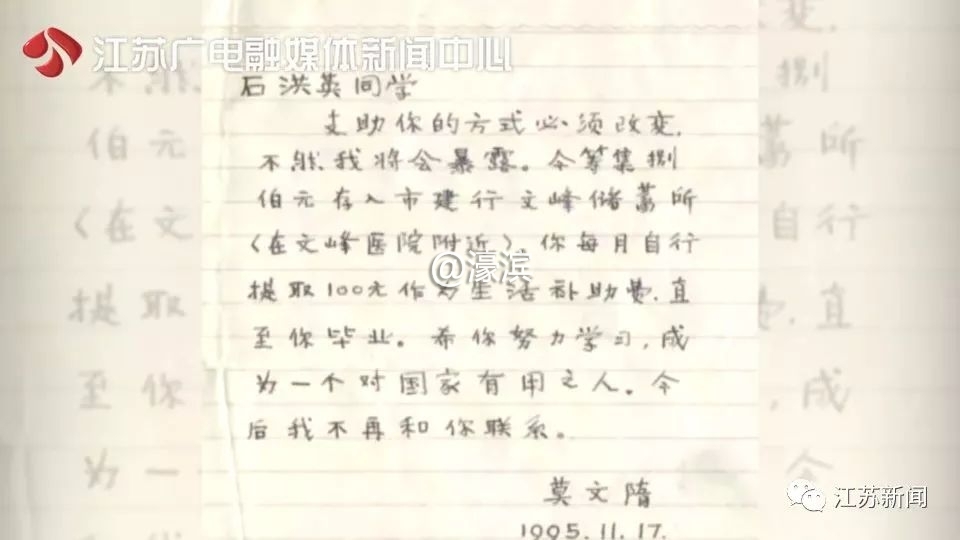 江苏广电融媒体新闻中心
石洪英同学
支助你的方式必须改变,
不然我将会暴露。今筹集捌
伯元存入市建行文峰储蓄所
(在文峰医院附近),你每月自行
@濠滨
提取100元作为生活补助费,直
至你毕业。希你努力学习,成
为一个对国家有用之人。今
后我不再和你联系。
莫文隋
1995.11.17.
江苏新闻